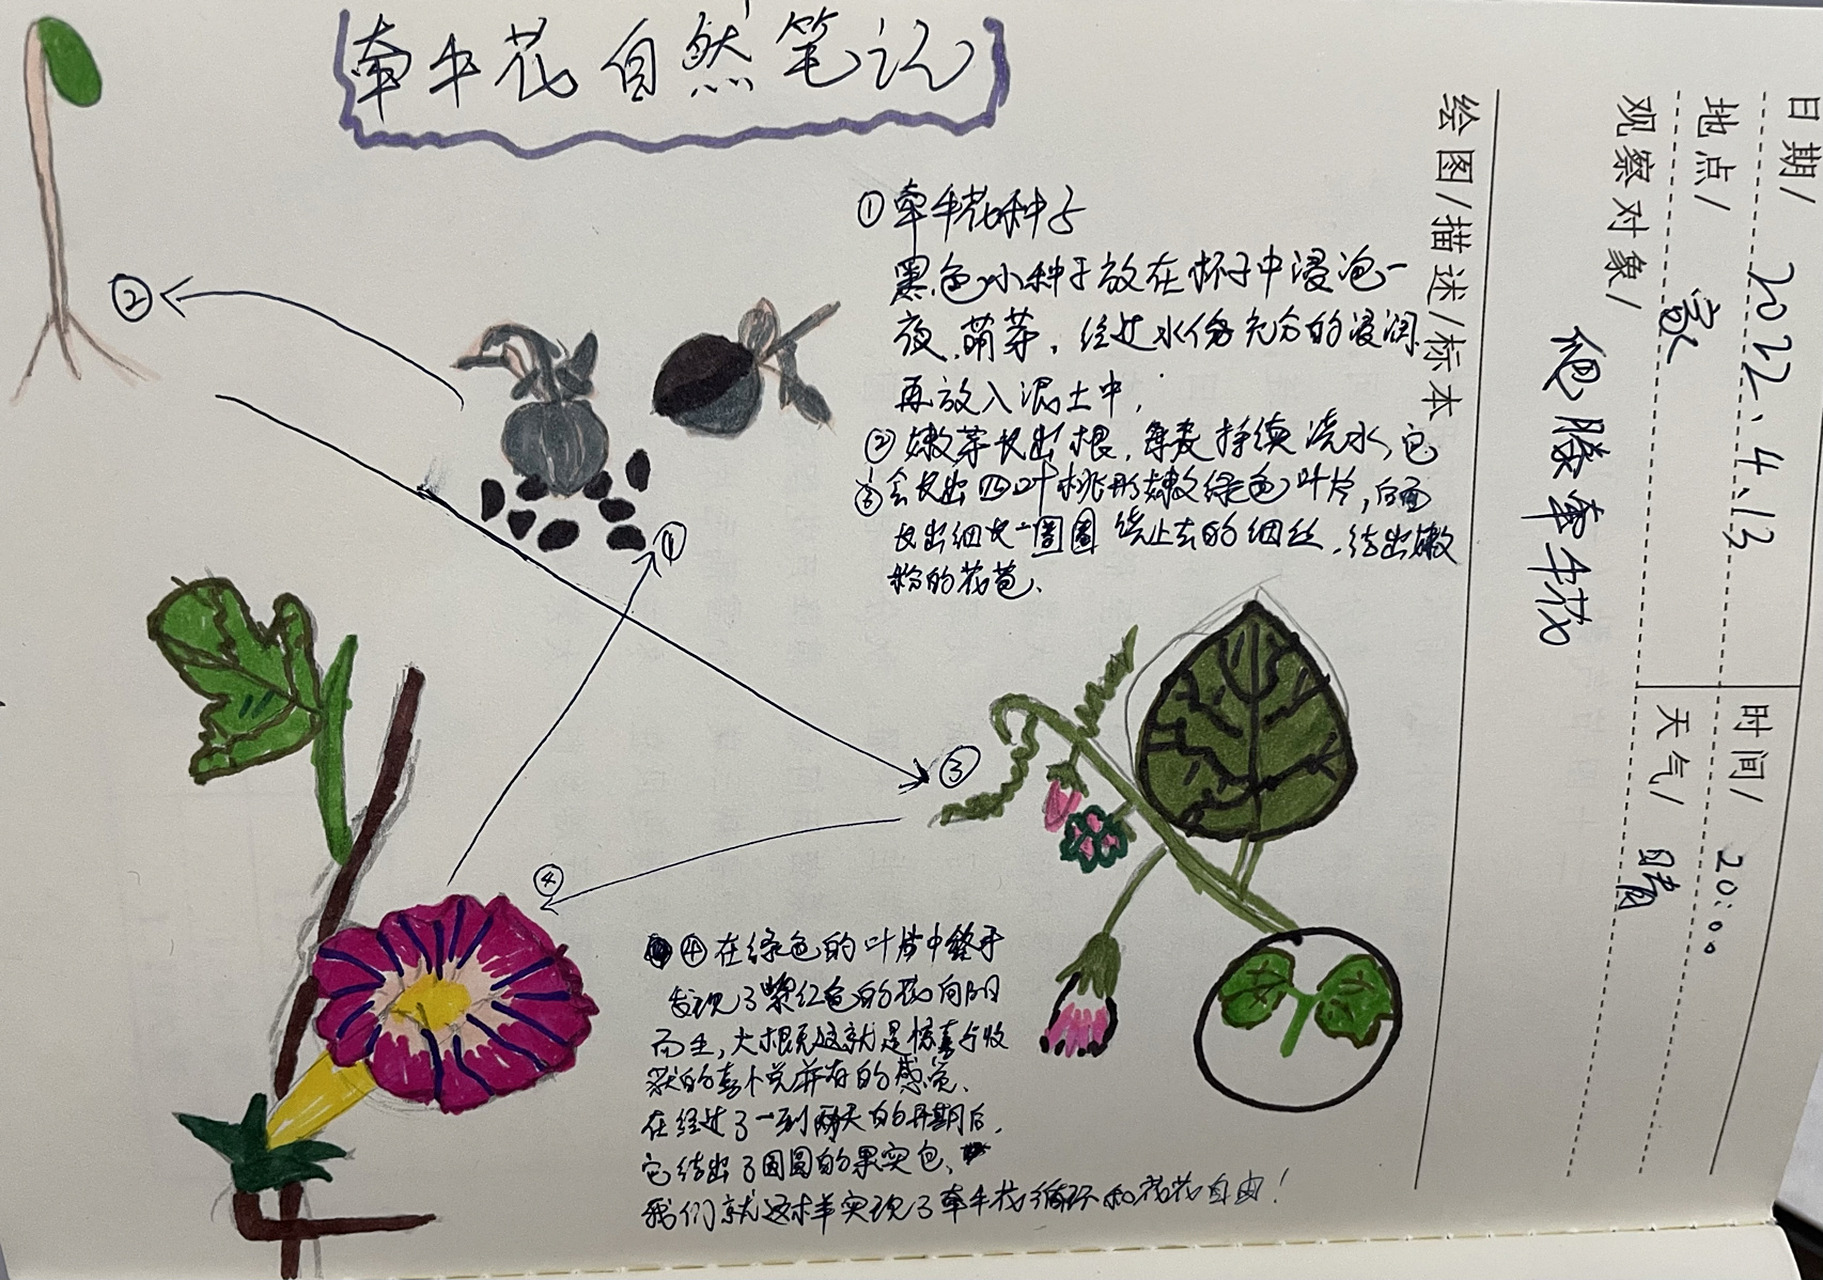 牵牛花自然笔记
日期/ 2022.4.13
时间/ 20:00
地点/ 家
天气/ 晴
观察对象/ 爬藤牵牛花
绘图/描述/标本
①牵牛花种子
黑色小种子放在杯子中浸泡一
夜,萌芽,经过水份充分的浸润
再放入泥土中,
②嫩芽长出根,每天持续浇水,它
③会长出四叶桃形嫩绿色叶片,后面
长出细长一圈圈绕上去的细丝,结出嫩
粉的花苞.
②
①
③
④
④在绿色的叶片中终于
发现了紫红色的花向阳
而生,大概这就是惊喜与收
获的喜悦并存的感觉.
在经过了一到两天的开期后,
它结出了圆圆的果实包,
我们就这样实现了牵牛花循环和花花自由!